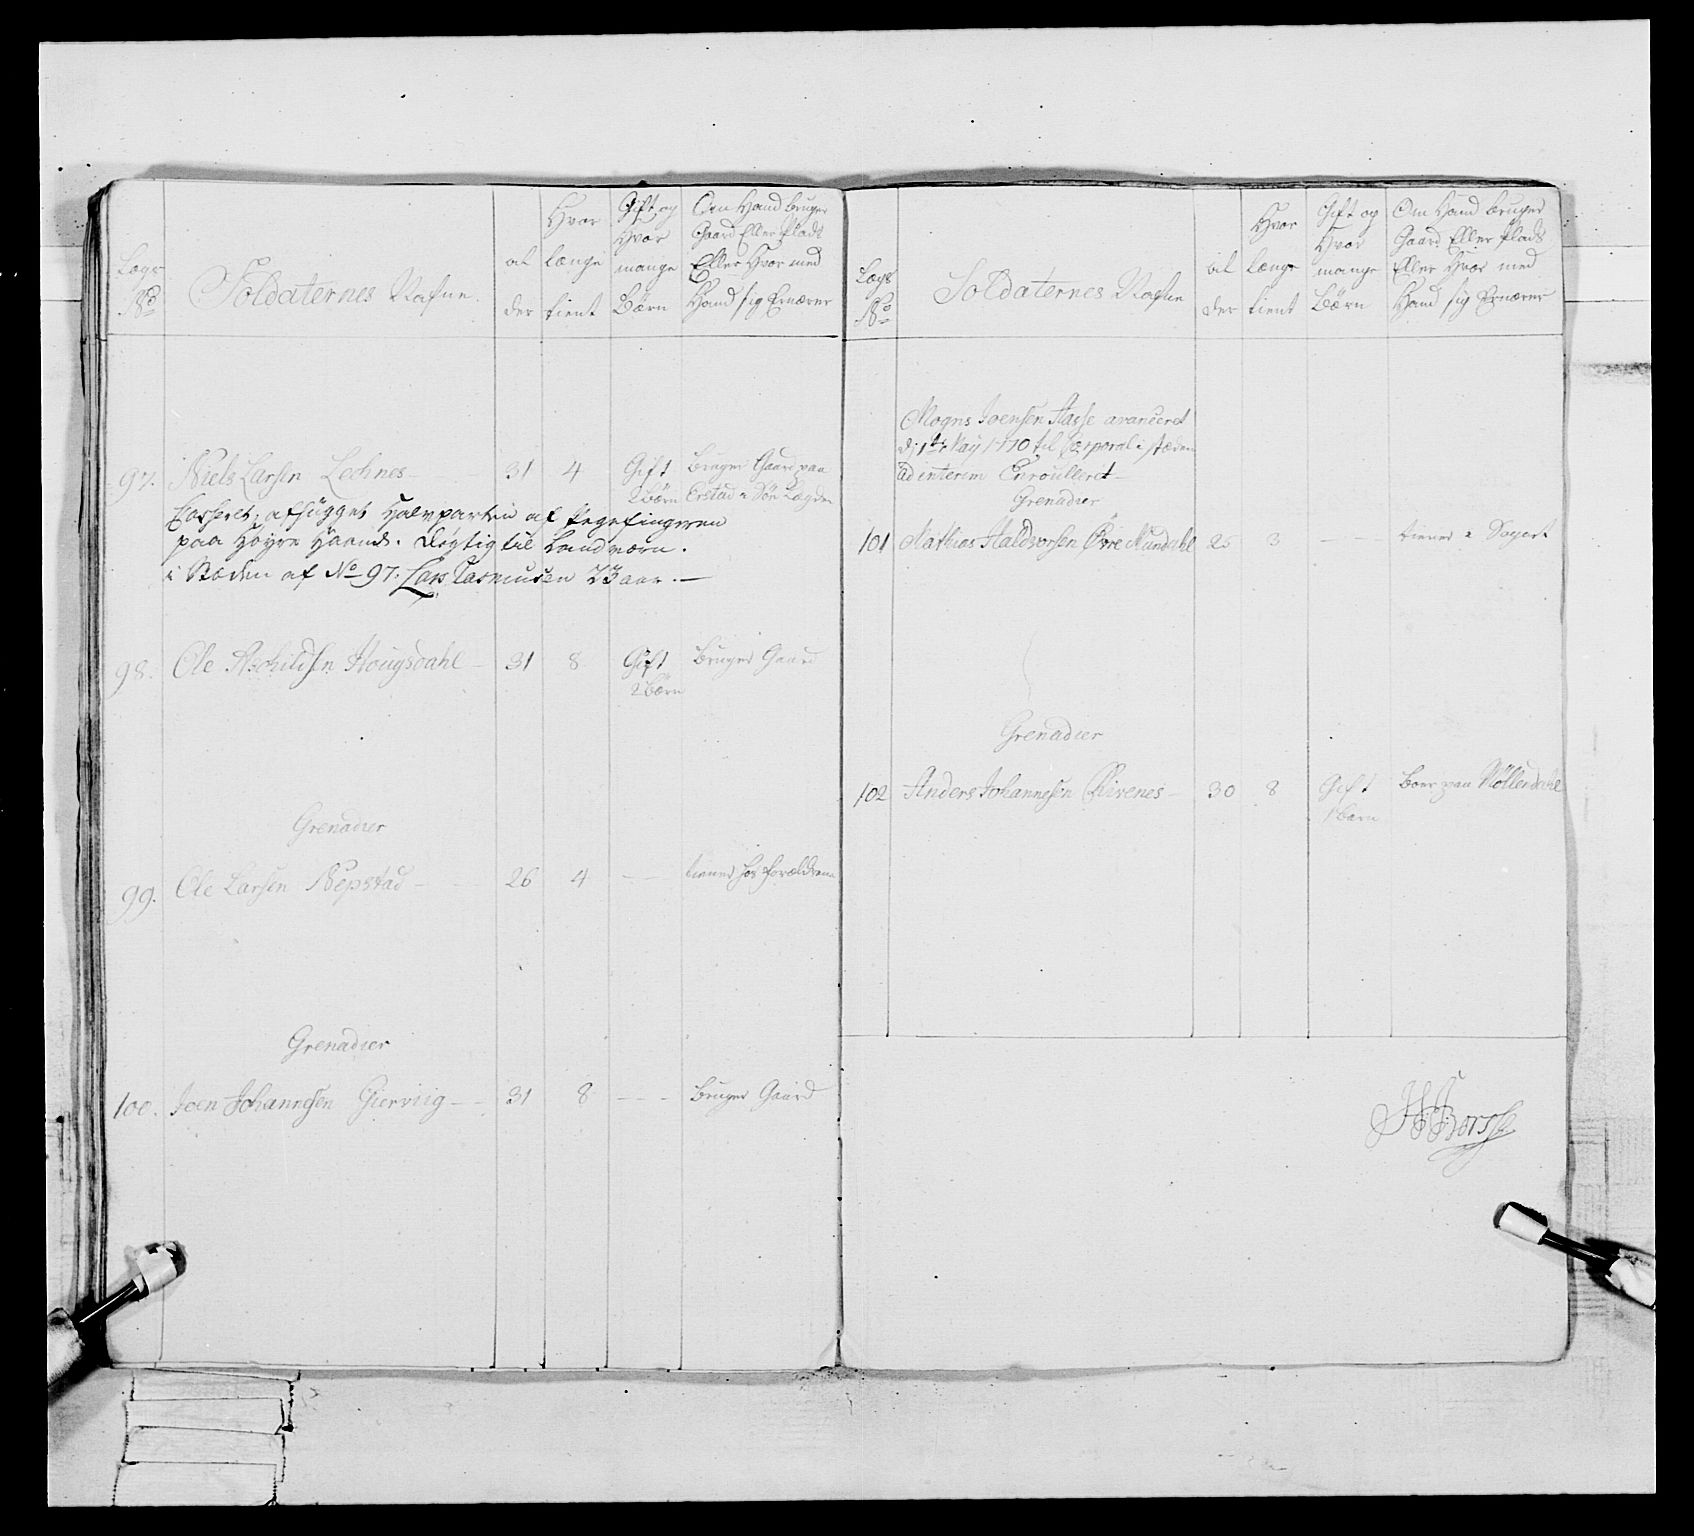 Lægs No
Soldaternes Nafne.
al der
Hvor længe tient
Gift og Hvor mange Børn
Om Hand bruger Gaard Eller Plads Eller Hvor med Hand sig Ernærer
97. Niels Larsen Lechnes 31 4 Gift 2 Børn Bruger Gaard paa
Casseret, afhugget Halvparten af Pegefingeren
paa Høyre Haand. Dygtig til Landværn.
i Stæden af No 97. Lars Rasmusen 23 aar.
98. Ole Hougsdahl 31 8 Gift 2 Børn Bruger Gaard
Grenadier
99. Ole Larsen Nepstad 26 4 — tiener hos forældrene
Grenadier
100. Joen Johannesen Gierviig 31 8 — Bruger Gaard
Lægs No
Soldaternes Nafne
al der
Hvor længe tient
Gift og Hvor mange Børn
Om Hand bruger Gaard Eller Plads Eller Hvor med Hand sig Ernærer
Mogns Joensen avanceret
d: 1te May 1770 til Corporal i stæden
ad interim Enroulleret
Grenadier
101 Mathias Haldvorsen Øvre Mundahl 26 3 — tiener i
Grenadier
102 Anders Johannesen Kirenes 30 8 Gift 1 Barn Boer paa Møllendahl